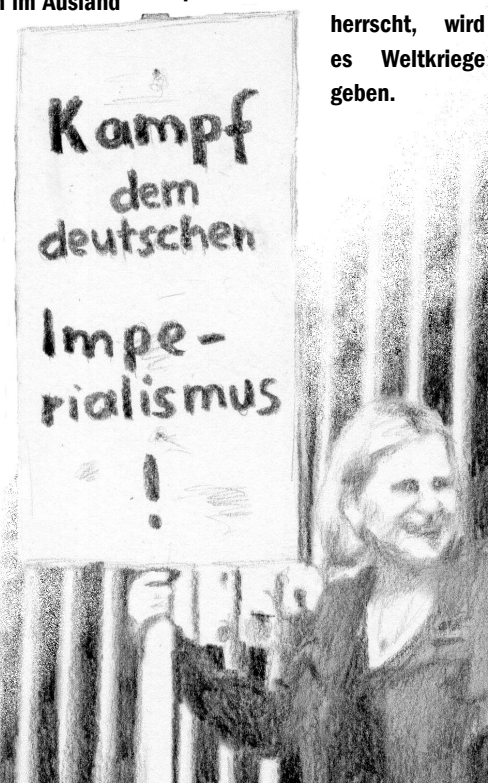 im Ausland
herrscht, wird
es Weltkriege
geben.
Kampf
dem
deutschen
Impe-
rialismus
!